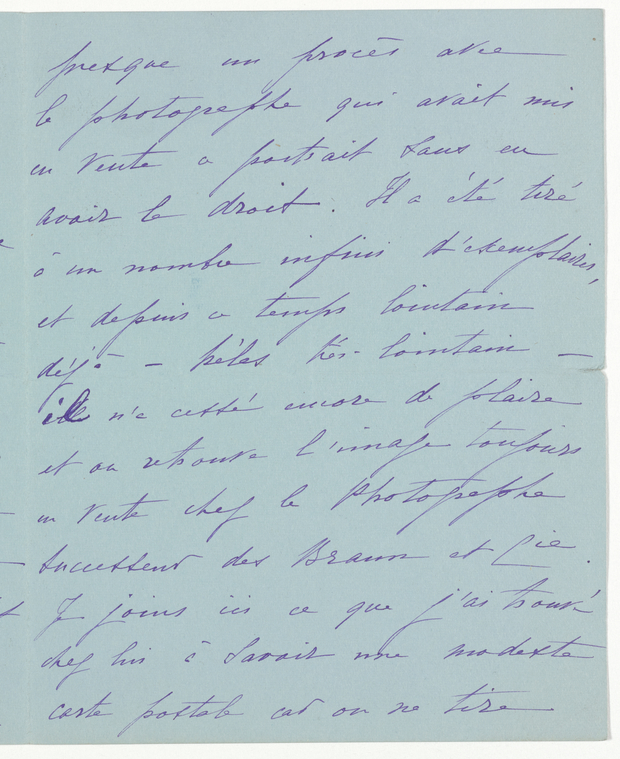 presque un procès avec
le photographe qui avait mis
en vente ce portrait sans en
avoir le droit. Il a été tiré
à un nombre infini d'exemplaires,
et depuis ce temps lointain
déjà – hélas très-lointain –
il n'a cessé encore de plaire
et on retrouve l'image toujours
en vente chez le Photographe
successeur des Braun et Cie.
Je joins ici ce que j'ai trouvé
chez lui à savoir une modeste
carte postale car on ne tire